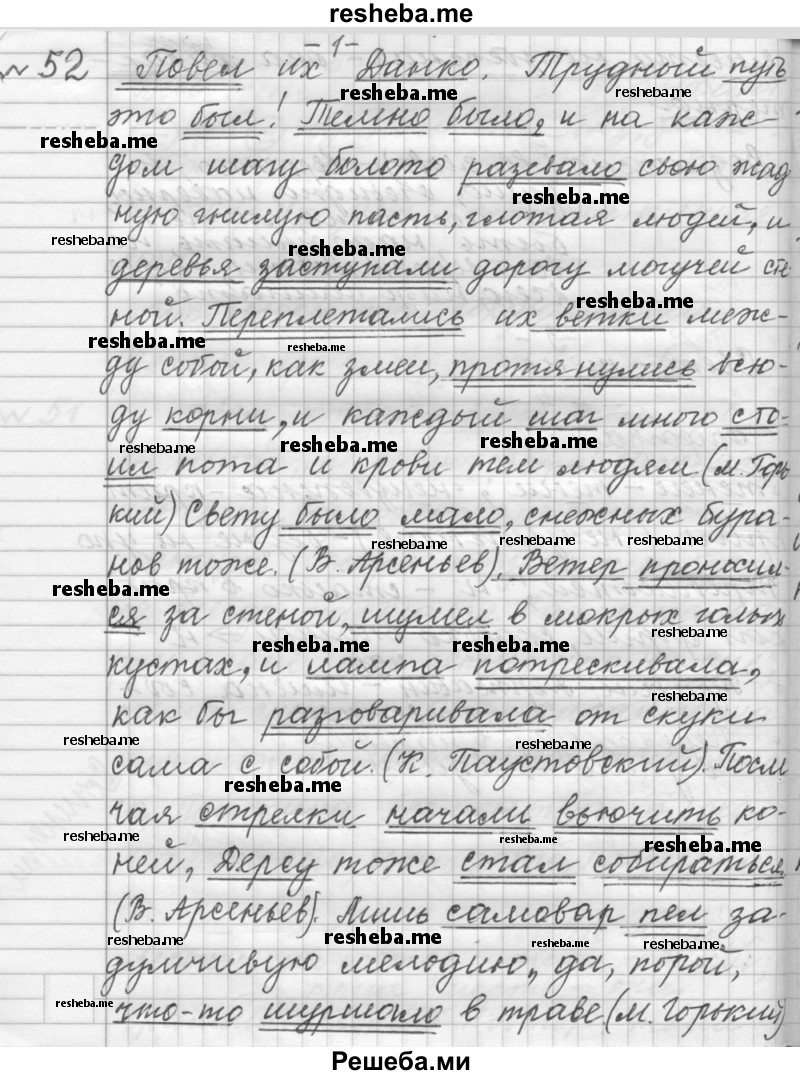 resheba.me
-1-
№ 52 Повел их Данко. Трудный путь
это был! Темно было, и на каж-
дом шагу болото разевало свою жад
ную гнилую пасть, глотая людей, и
деревья заступали дорогу могучей сте
ной. Переплетались их ветки меж-
ду собой, как змеи, протянулись всю-
ду корни, и каждый шаг много сто-
ил пота и крови тем людям (М. Горь
кий) Свету было мало, снежных бура-
нов тоже. (В. Арсеньев). Ветер проносил-
ся за стеной, шумел в мокрых голых
кустах, и лампа потрескивала,
как бы разговаривала от скуки
сама с собой. (К. Паустовский). Посм
чая стрелки начали вьючить ко-
ней, Дерсу тоже стал собираться
(В. Арсеньев). Лишь самовар пел за-
думчивую мелодию, да, порой,
что-то шуршало в траве (М. Горький)
Решеба.ми